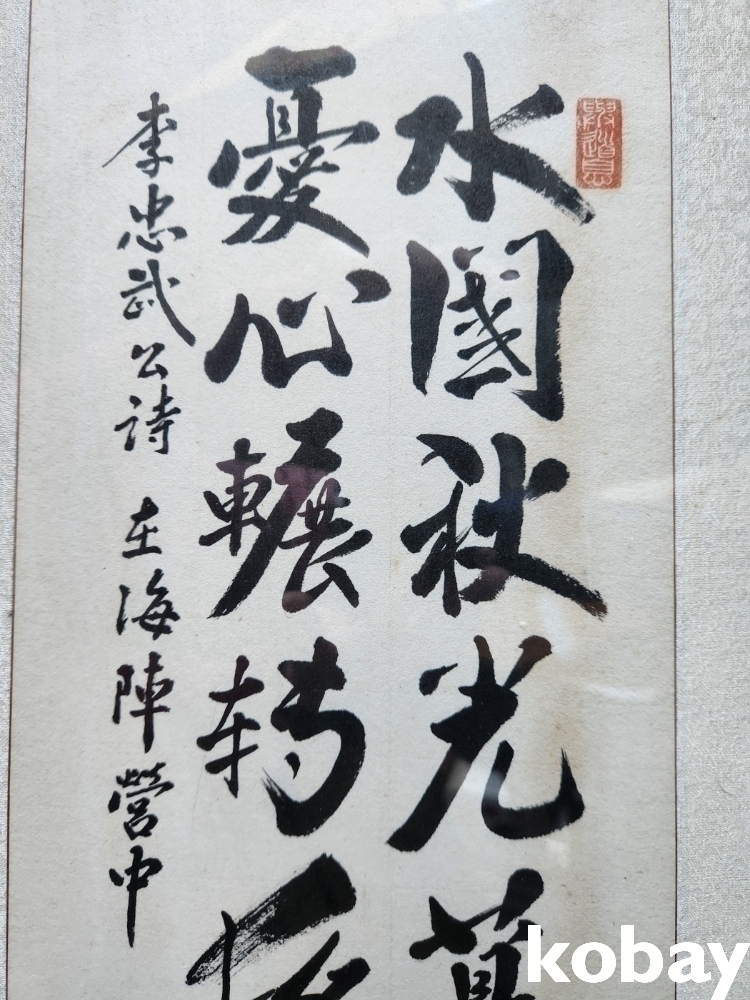 水國秋光
憂心輾轉
李忠武公詩 在海陣營中
kobay